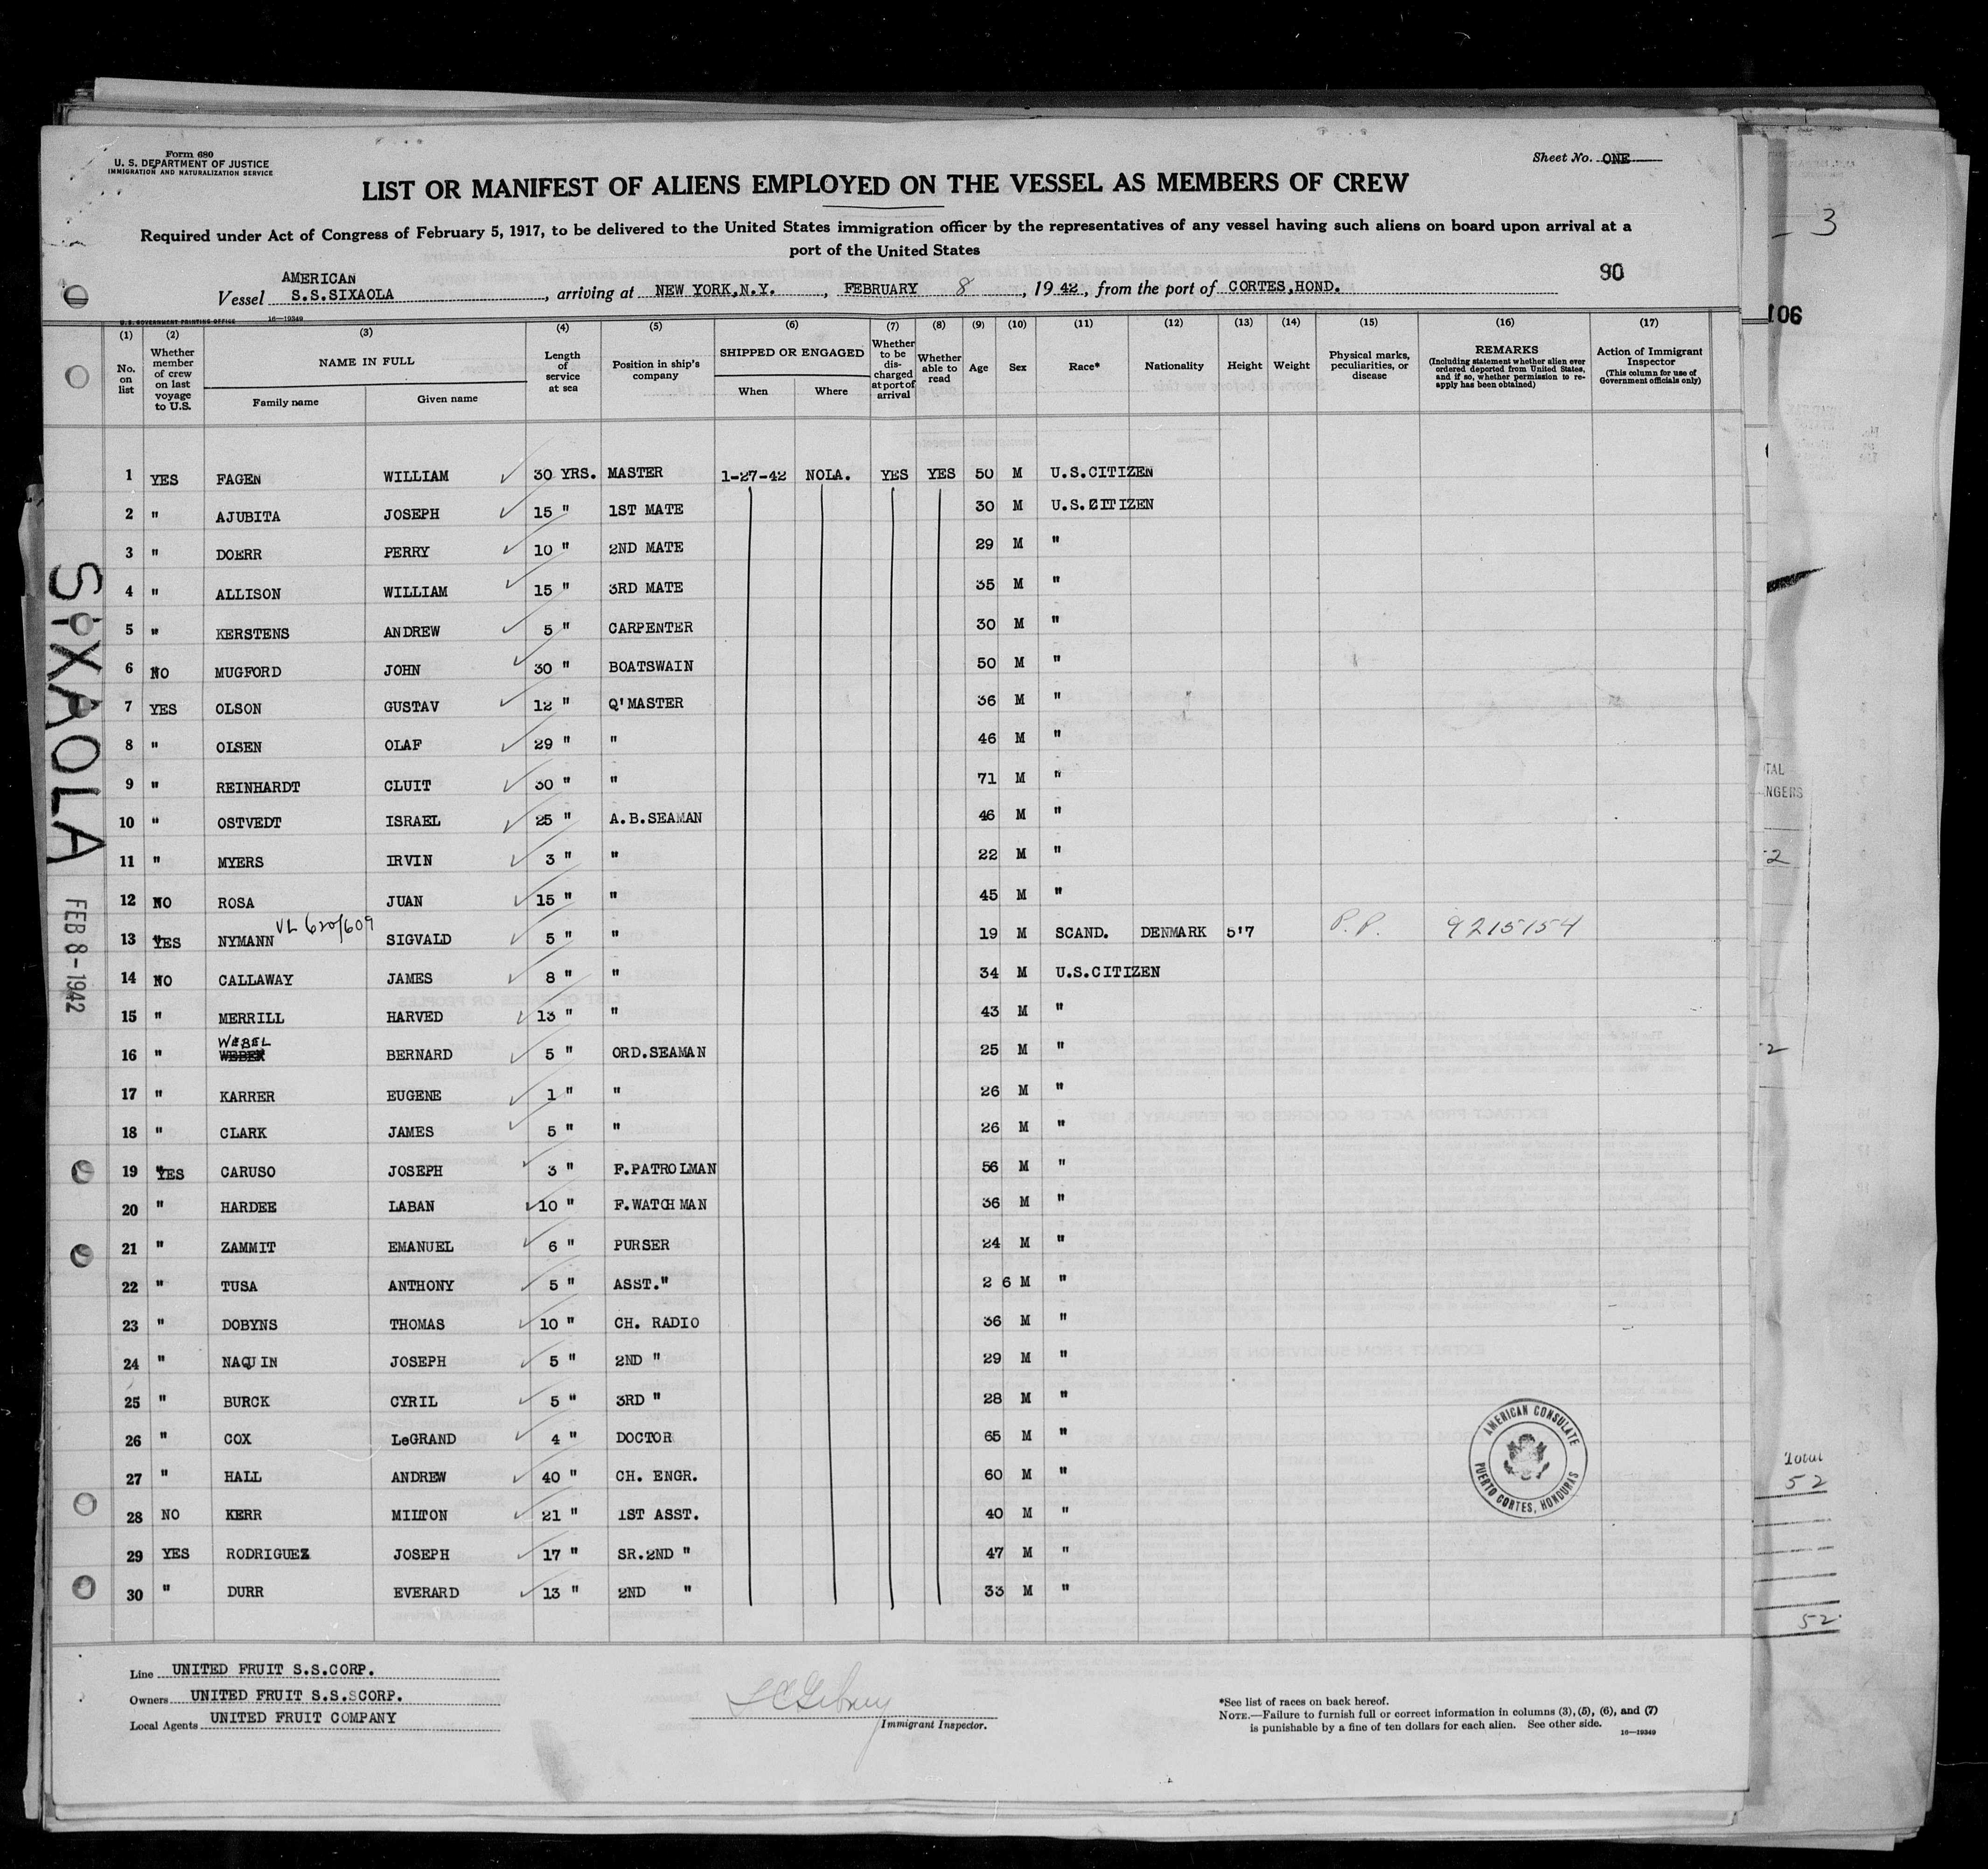 Form 680
U. S. DEPARTMENT OF JUSTICE
IMMIGRATION AND NATURALIZATION SERVICE
Sheet No. ONE
LIST OR MANIFEST OF ALIENS EMPLOYED ON THE VESSEL AS MEMBERS OF CREW
Required under Act of Congress of February 5, 1917, to be delivered to the United States immigration officer by the representatives of any vessel having such aliens on board upon arrival at a
port of the United States
90
AMERICAN
Vessel S.S.SIXAOLA, arriving at NEW YORK,N.Y., FEBRUARY 8, 1942, from the port of CORTES,HOND.
U. S. GOVERNMENT PRINTING OFFICE 16—19349
(1) (2) (3) (4) (5) (6) (7) (8) (9) (10) (11) (12) (13) (14) (15) (16) (17)
No. on list
Whether member of crew on last voyage to U.S.
NAME IN FULL
Family name
Given name
Length of service at sea
Position in ship's company
SHIPPED OR ENGAGED
When
Where
Whether to be discharged at port of arrival
Whether able to read
Age
Sex
Race*
Nationality
Height
Weight
Physical marks, peculiarities, or disease
REMARKS
(Including statement whether alien ever ordered deported from United States, and if so, whether permission to reapply has been obtained)
Action of Immigrant Inspector
(This column for use of Government officials only)
1 YES FAGEN WILLIAM 30 YRS. MASTER 1-27-42 NOLA. YES YES 50 M U.S.CITIZEN
2 " AJUBITA JOSEPH 15 " 1ST MATE 30 M U.S.CITIZEN
3 " DOERR PERRY 10 " 2ND MATE 29 M "
4 " ALLISON WILLIAM 15 " 3RD MATE 35 M "
5 " KERSTENS ANDREW 5 " CARPENTER 30 M "
6 NO MUGFORD JOHN 30 " BOATSWAIN 50 M "
7 YES OLSON GUSTAV 12 " Q'MASTER 36 M "
8 " OLSEN OLAF 29 " " 46 M "
9 " REINHARDT CLUIT 30 " " 71 M "
10 " OSTVEDT ISRAEL 25 " A.B.SEAMAN 46 M "
11 " MYERS IRVIN 3 " " 22 M "
12 NO ROSA JUAN 15 " " 45 M "
VL 620/609
13 YES NYMANN SIGVALD 5 " " 19 M SCAND. DENMARK 5'7 P.P. 9215154
14 NO CALLAWAY JAMES 8 " " 34 M U.S.CITIZEN
15 " MERRILL HARVED 13 " " 43 M "
WEBEL
16 " WEBER BERNARD 5 " ORD.SEAMAN 25 M "
17 " KARRER EUGENE 1 " " 26 M "
18 " CLARK JAMES 5 " " 26 M "
19 YES CARUSO JOSEPH 3 " F.PATROLMAN 56 M "
20 " HARDEE LABAN 10 " F.WATCHMAN 36 M "
21 " ZAMMIT EMANUEL 6 " PURSER 24 M "
22 " TUSA ANTHONY 5 " ASST." 2 6 M "
23 " DOBYNS THOMAS 10 " CH. RADIO 36 M "
24 " NAQUIN JOSEPH 5 " 2ND " 29 M "
25 " BURCK CYRIL 5 " 3RD " 28 M "
26 " COX LeGRAND 4 " DOCTOR 65 M "
27 " HALL ANDREW 40 " CH. ENGR. 60 M "
28 NO KERR MILTON 21 " 1ST ASST. 40 M "
29 YES RODRIGUEZ JOSEPH 17 " SR.2ND " 47 M "
30 " DURR EVERARD 13 " 2ND " 33 M "
AMERICAN CONSULATE
PUERTO CORTES, HONDURAS
SIXAOLA
FEB 8-1942
Line UNITED FRUIT S.S.CORP.
Owners UNITED FRUIT S.S.SCORP.
Local Agents UNITED FRUIT COMPANY
Immigrant Inspector.
*See list of races on back hereof.
NOTE.—Failure to furnish full or correct information in columns (3), (5), (6), and (7)
is punishable by a fine of ten dollars for each alien. See other side. 16—19349
3
106
TAL
NGERS
2
2
Total
52
52